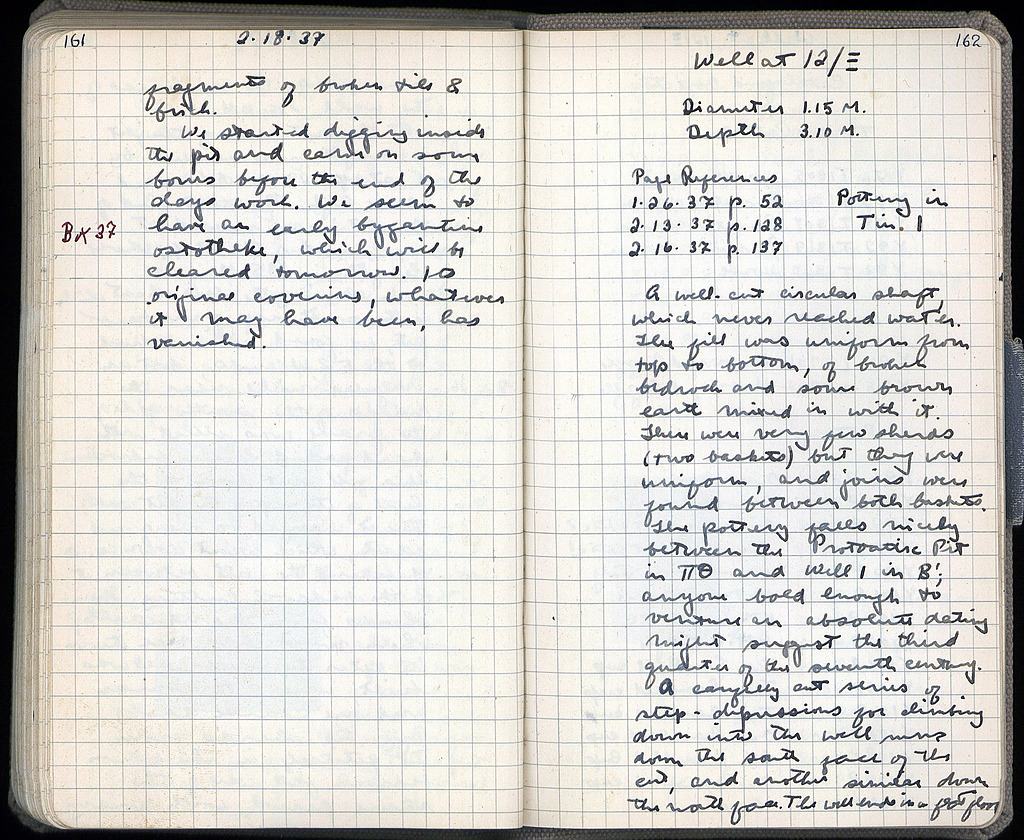 161
2·18·37
fragments of broken tile &
brick.
We started digging inside
the pit and came on some
bones before the end of the
days work. We seem to
have an early byzantine
ostotheke, which will be
cleared tomorrow. Its
original covering, whatever
it may have been, has
vanished.
162
Well at 12/Ξ
Diameter 1.15 M.
Depth 3.10 M.
Page References
1·26·37 p. 52 Pottery in
2·13·37 p. 128 Tin. 1
2·16·37 p. 137
A well-cut circular shaft,
which never reached water.
The fill was uniform from
top to bottom, of broken
bedrock and some brown
earth mixed in with it.
There were very few sherds
(two baskets) but they were
uniform, and joins were
found between both baskets.
The pottery falls nicely
between the Protoattic Pit
in ΠΘ and Well 1 in B';
anyone bold enough to
venture an absolute dating
might suggest the third
quarter of the seventh century.
A carefully cut series of
step-depressions for climbing
down into the well runs
down the south face of the
cut, and another similar down
the north face. The well ends in a flat floor